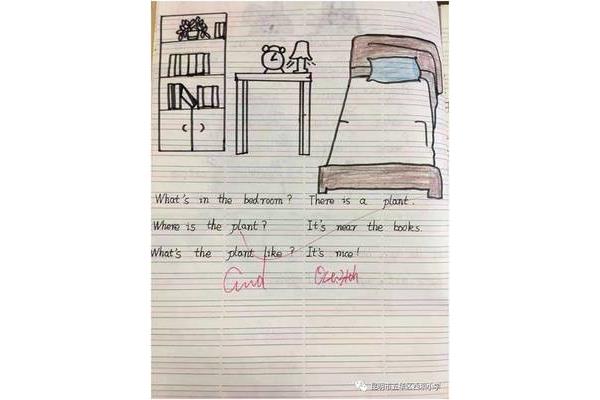 What's in the bedroom? There is a plant.
Where is the plant? It's near the books.
What's the plant like? It's nice!
昆明市五华区西翥小学